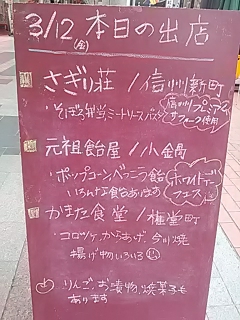 3/12(金) 本日の出店
さぎり荘 / 信州新町
そぼろ弁当、ミートソースパスタ
信州プレミアム
サフォーク使用
元祖飴屋 / 小鍋
ポップコーン、バニラ飴
いろんな飴あります
ホワイトデー
フェス
かまた食堂 / 権堂町
コロッケ、からあげ、今川焼
揚げ物いろいろ
りんご、お漬物、焼菓子も
あります